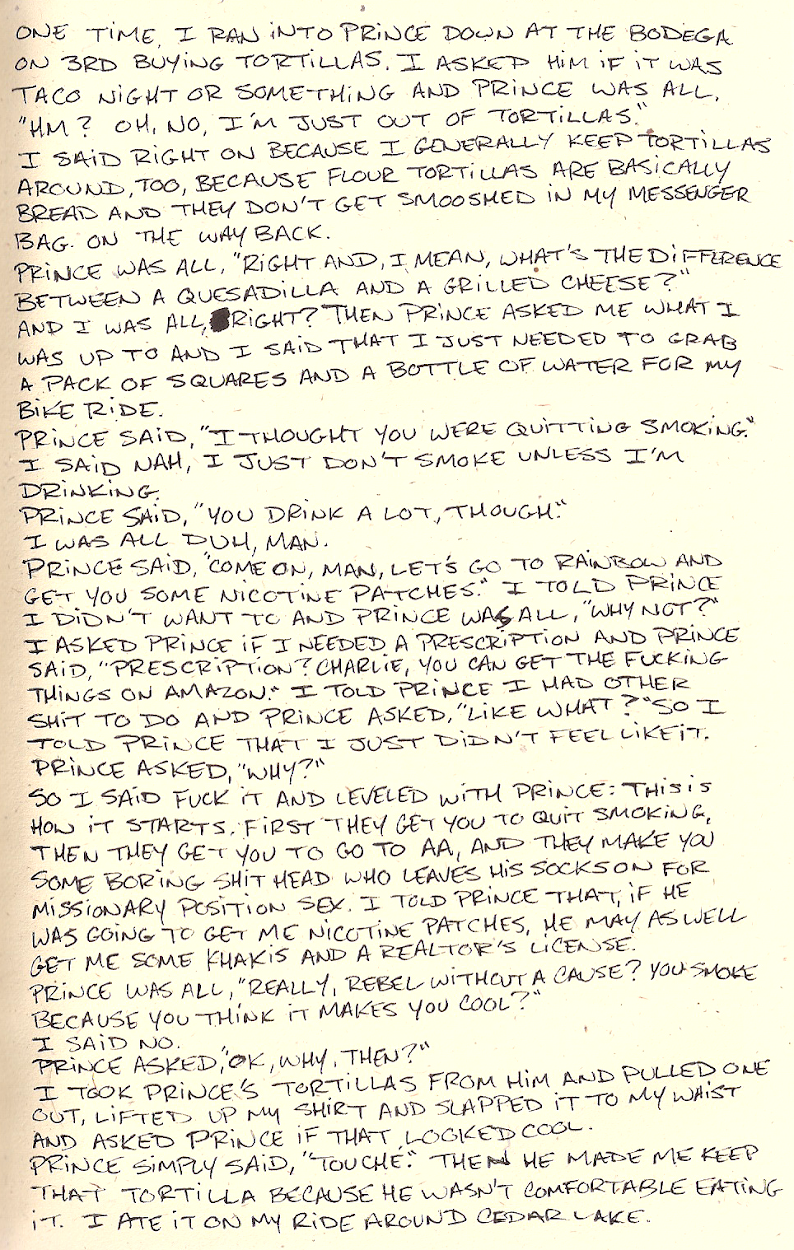 ONE TIME, I RAN INTO PRINCE DOWN AT THE BODEGA
ON 3RD BUYING TORTILLAS. I ASKED HIM IF IT WAS
TACO NIGHT OR SOMETHING AND PRINCE WAS ALL,
"HM? OH, NO, I'M JUST OUT OF TORTILLAS."
I SAID RIGHT ON BECAUSE I GENERALLY KEEP TORTILLAS
AROUND, TOO, BECAUSE FLOUR TORTILLAS ARE BASICALLY
BREAD AND THEY DON'T GET SMOOSHED IN MY MESSENGER
BAG. ON THE WAY BACK.
PRINCE WAS ALL, "RIGHT AND, I MEAN, WHAT'S THE DIFFERENCE
BETWEEN A QUESADILLA AND A GRILLED CHEESE?"
AND I WAS ALL, RIGHT? THEN PRINCE ASKED ME WHAT I
WAS UP TO AND I SAID THAT I JUST NEEDED TO GRAB
A PACK OF SQUARES AND A BOTTLE OF WATER FOR MY
BIKE RIDE.
PRINCE SAID, "I THOUGHT YOU WERE QUITTING SMOKING."
I SAID NAH, I JUST DON'T SMOKE UNLESS I'M
DRINKING.
PRINCE SAID, "YOU DRINK A LOT, THOUGH."
I WAS ALL DUH, MAN.
PRINCE SAID, "COME ON, MAN, LET'S GO TO RAINBOW AND
GET YOU SOME NICOTINE PATCHES." I TOLD PRINCE
I DIDN'T WANT TO AND PRINCE WAS ALL, "WHY NOT?"
I ASKED PRINCE IF I NEEDED A PRESCRIPTION AND PRINCE
SAID, "PRESCRIPTION? CHARLIE, YOU CAN GET THE FUCKING
THINGS ON AMAZON." I TOLD PRINCE I HAD OTHER
SHIT TO DO AND PRINCE ASKED, "LIKE WHAT?" SO I
TOLD PRINCE THAT I JUST DIDN'T FEEL LIKE IT.
PRINCE ASKED, "WHY?"
SO I SAID FUCK IT AND LEVELED WITH PRINCE: THIS IS
HOW IT STARTS. FIRST THEY GET YOU TO QUIT SMOKING,
THEN THEY GET YOU TO GO TO AA, AND THEY MAKE YOU
SOME BORING SHIT HEAD WHO LEAVES HIS SOCKS ON FOR
MISSIONARY POSITION SEX. I TOLD PRINCE THAT, IF HE
WAS GOING TO GET ME NICOTINE PATCHES, HE MAY AS WELL
GET ME SOME KHAKIS AND A REALTOR'S LICENSE.
PRINCE WAS ALL, "REALLY, REBEL WITHOUT A CAUSE? YOU SMOKE
BECAUSE YOU THINK IT MAKES YOU COOL?"
I SAID NO.
PRINCE ASKED, "OK, WHY, THEN?"
I TOOK PRINCE'S TORTILLAS FROM HIM AND PULLED ONE
OUT, LIFTED UP MY SHIRT AND SLAPPED IT TO MY WAIST
AND ASKED PRINCE IF THAT LOOKED COOL.
PRINCE SIMPLY SAID, "TOUCHÉ." THEN HE MADE ME KEEP
THAT TORTILLA BECAUSE HE WASN'T COMFORTABLE EATING
IT. I ATE IT ON MY RIDE AROUND CEDAR LAKE.